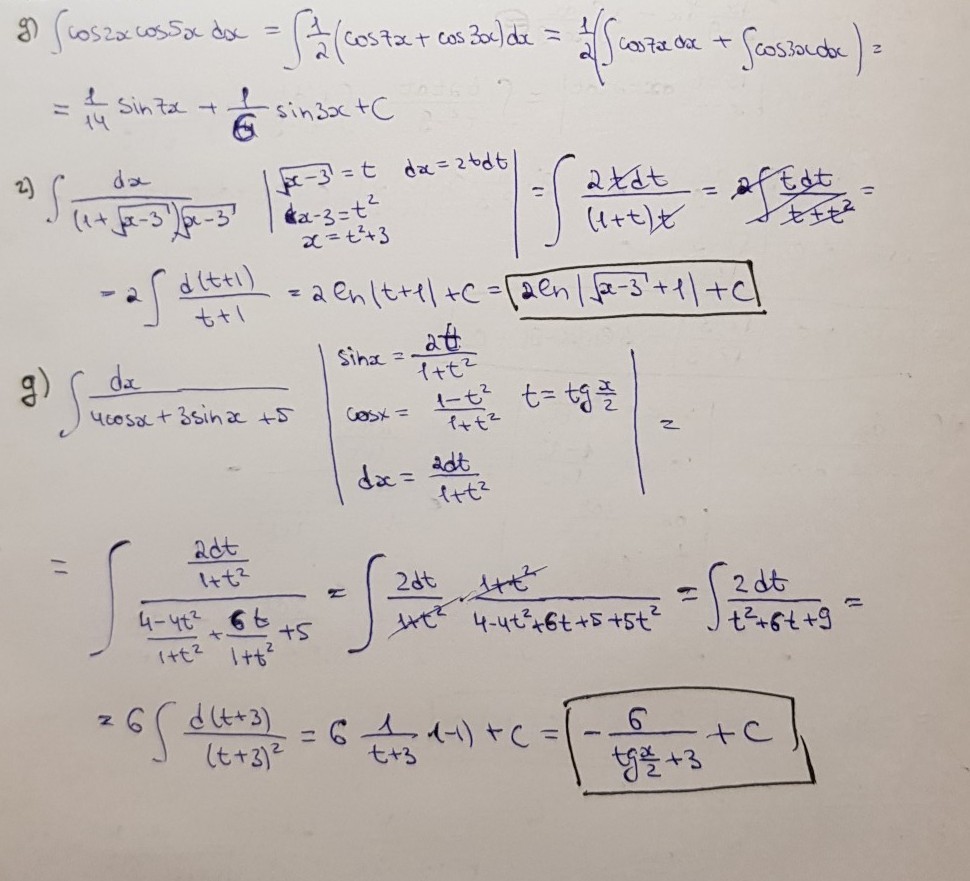 g) ∫cos2x cos5x dx = ∫1/2(cos7x + cos3x)dx = 1/2(∫cos7x dx + ∫cos3x dx) =
= 1/14 sin7x + 1/6 sin3x + C
г) ∫ dx/((1+√(x-3))√(x-3)) | √(x-3) = t dx = 2tdt x-3 = t² x = t²+3 | = ∫ 2tdt/((1+t)t) = 2∫ tdt/(t+t²) =
= 2∫ d(t+1)/(t+1) = 2ln|t+1| + C = 2ln|√(x-3)+1| + C
g) ∫ dx/(4cosx + 3sinx + 5) | sinx = 2t/(1+t²) cosx = (1-t²)/(1+t²) t = tg x/2 dx = 2dt/(1+t²) | =
= ∫ (2dt/(1+t²))/((4-4t²)/(1+t²) + 6t/(1+t²) + 5) = ∫ 2dt/(1+t²) · (1+t²)/(4-4t²+6t+5+5t²) = ∫ 2dt/(t²+6t+9) =
= 6∫ d(t+3)/(t+3)² = 6 1/(t+3) ·(-1) + C = -6/(tg x/2 + 3) + C